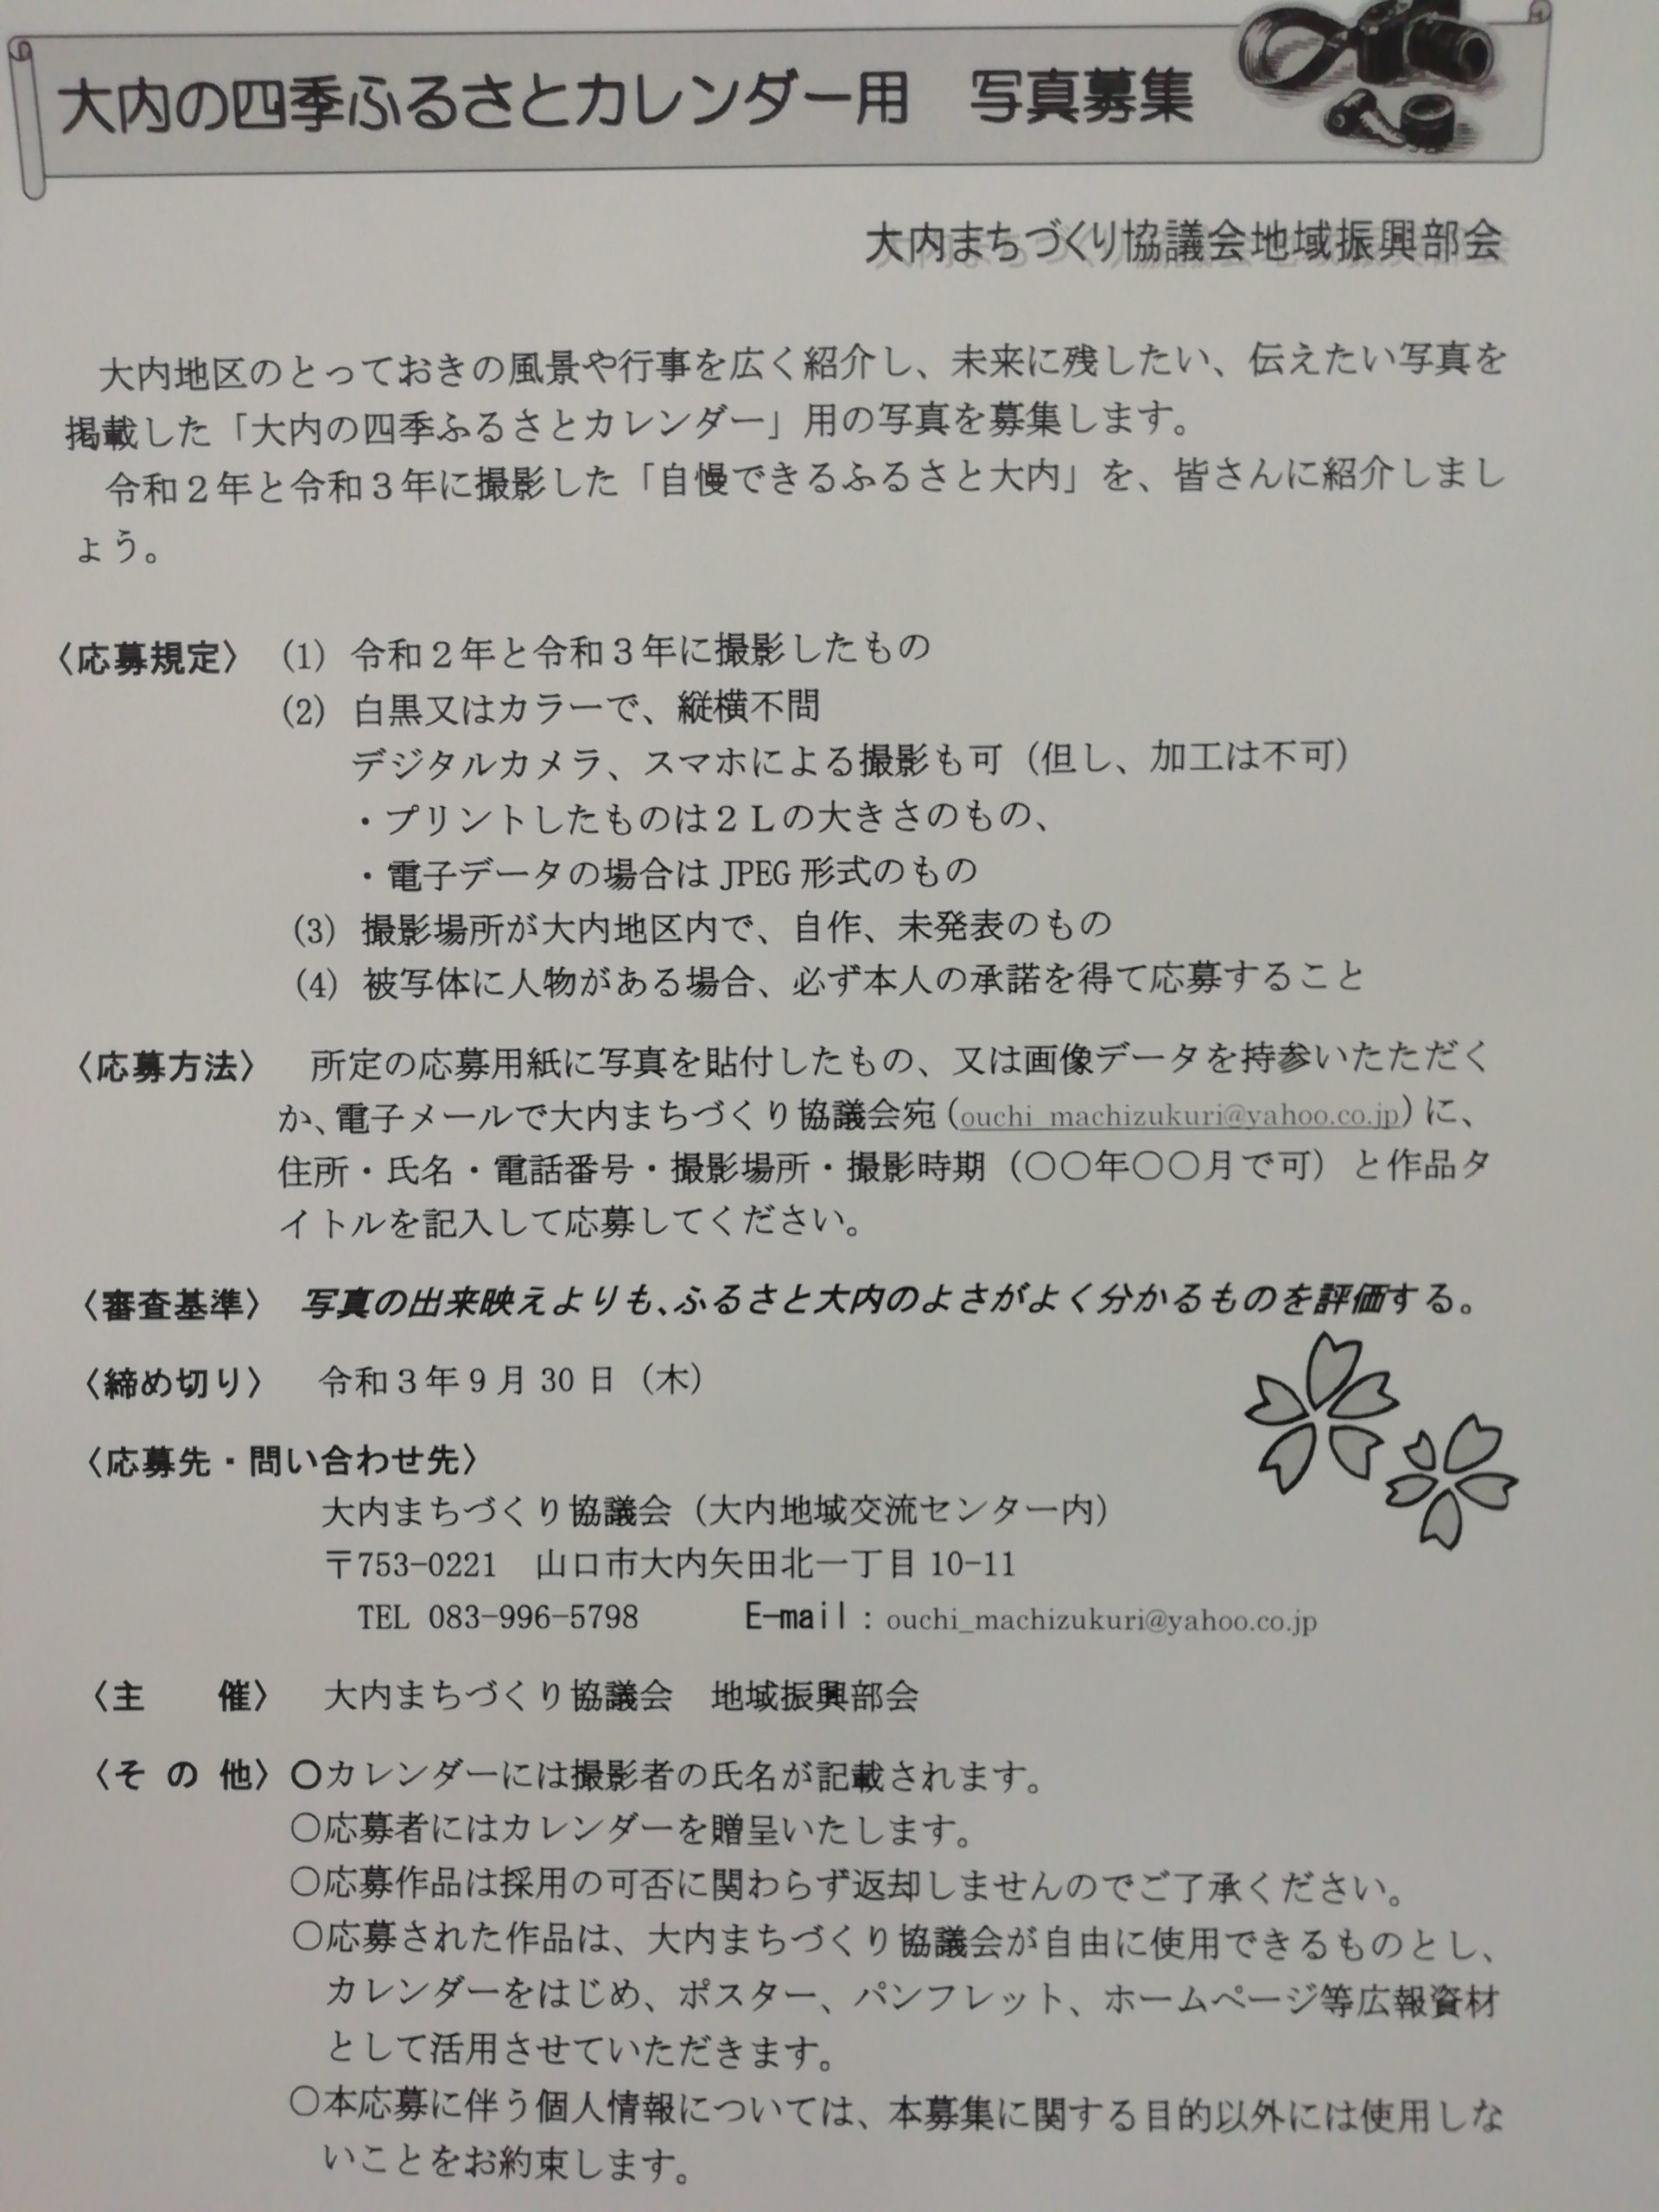 大内の四季ふるさとカレンダー用　写真募集
大内まちづくり協議会地域振興部会
大内地区のとっておきの風景や行事を広く紹介し、未来に残したい、伝えたい写真を
掲載した「大内の四季ふるさとカレンダー」用の写真を募集します。
令和２年と令和３年に撮影した「自慢できるふるさと大内」を、皆さんに紹介しまし
ょう。
〈応募規定〉 (1) 令和２年と令和３年に撮影したもの
(2) 白黒又はカラーで、縦横不問
デジタルカメラ、スマホによる撮影も可（但し、加工は不可）
・プリントしたものは２Ｌの大きさのもの、
・電子データの場合は JPEG 形式のもの
(3) 撮影場所が大内地区内で、自作、未発表のもの
(4) 被写体に人物がある場合、必ず本人の承諾を得て応募すること
〈応募方法〉　所定の応募用紙に写真を貼付したもの、又は画像データを持参いたただく
か、電子メールで大内まちづくり協議会宛（ouchi_machizukuri@yahoo.co.jp）に、
住所・氏名・電話番号・撮影場所・撮影時期（〇〇年〇〇月で可）と作品タ
イトルを記入して応募してください。
〈審査基準〉　写真の出来映えよりも、ふるさと大内のよさがよく分かるものを評価する。
〈締め切り〉　令和３年９月 30 日（木）
〈応募先・問い合わせ先〉
大内まちづくり協議会（大内地域交流センター内）
〒753-0221　山口市大内矢田北一丁目 10-11
TEL 083-996-5798　E-mail：ouchi_machizukuri@yahoo.co.jp
〈主　　催〉　大内まちづくり協議会　地域振興部会
〈そ の 他〉〇カレンダーには撮影者の氏名が記載されます。
〇応募者にはカレンダーを贈呈いたします。
〇応募作品は採用の可否に関わらず返却しませんのでご了承ください。
〇応募された作品は、大内まちづくり協議会が自由に使用できるものとし、
カレンダーをはじめ、ポスター、パンフレット、ホームページ等広報資材
として活用させていただきます。
〇本応募に伴う個人情報については、本募集に関する目的以外には使用しな
いことをお約束します。